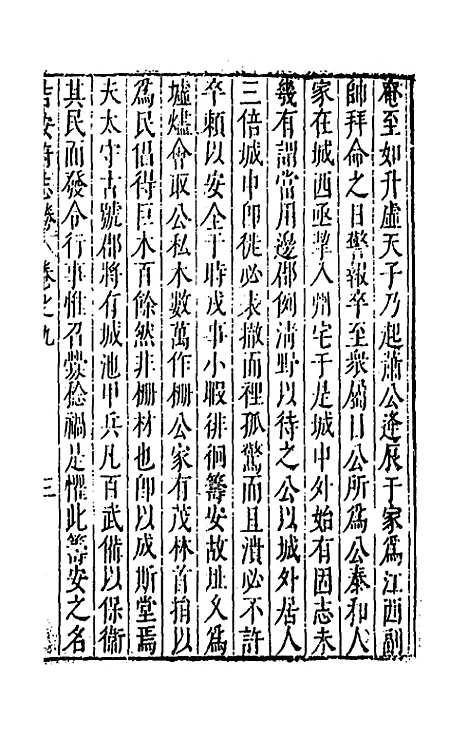 庵至如升虛天子乃起蕭公逢辰于家爲江西副
帥拜命之日警報卒至衆屬目公所爲公泰和人
家在城西亟挈入州宅于是城中外始有固志未
幾有謂當用邊郡例清野以待之公以城外居人
三倍城中卽徙必表撤而裡孤驚而且潰必不許
卒賴以安全于時戍事小暇徘徊籌安故址乂爲
墟燼會取公私木數萬作柵公家有茂林首捐以
爲民倡得巨木百餘然非柵材也卽以成斯堂焉
夫太守古號郡將有城池甲兵凡百武備以保衞
其民而發令行事惟召釁稔禍是懼此籌安之名
吉安府志 卷之九 三